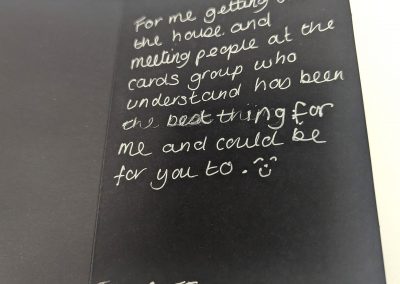 For me getting
the house and
meeting people at the
cards group who
understand has been
the best thing for
me and could be
for you to.